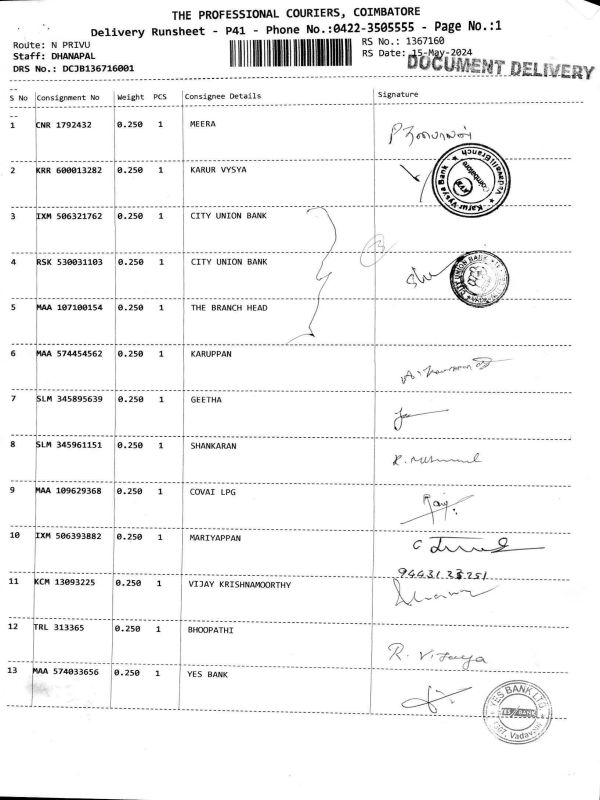 THE PROFESSIONAL COURIERS, COIMBATORE
Delivery Runsheet - P41 - Phone No.:0422-3505555 - Page No.:1
Route: N PRIVU
RS No.: 1367160
Staff: DHANAPAL
RS Date: 15-May-2024
DRS No.: DCJB136716001
DOCUMENT DELIVERY
S No Consignment No Weight PCS Consignee Details Signature
1 CNR 1792432 0.250 1 MEERA
2 KRR 600013282 0.250 1 KARUR VYSYA
Karur Vysya Bank
Vadavalli Branch
Coimbatore
KVB
3 IXM 506321762 0.250 1 CITY UNION BANK
3
4 RSK 530031103 0.250 1 CITY UNION BANK
CITY UNION BANK
5 MAA 107100154 0.250 1 THE BRANCH HEAD
6 MAA 574454562 0.250 1 KARUPPAN
7 SLM 345895639 0.250 1 GEETHA
8 SLM 345961151 0.250 1 SHANKARAN
9 MAA 109629368 0.250 1 COVAI LPG
10 IXM 506393882 0.250 1 MARIYAPPAN
11 KCM 13093225 0.250 1 VIJAY KRISHNAMOORTHY
12 TRL 313365 0.250 1 BHOOPATHI
R. Vijaya
13 MAA 574033656 0.250 1 YES BANK
YES BANK LTD.
YES BANK
1307, Vadavalli